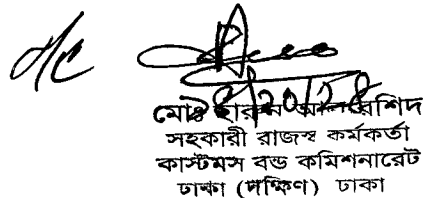 মোঃ হারুন অর রশিদ
সহকারী রাজস্ব কর্মকর্তা
কাস্টমস বন্ড কমিশনারেট
ঢাকা (দক্ষিণ) ঢাকা